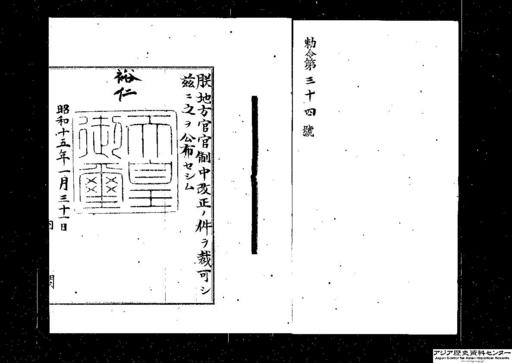 勅令第三十四號
朕地方官官制中改正ノ件ヲ裁可シ
茲ニ之ヲ公布セシム
裕仁
天皇
御璽
昭和十五年一月三十一日
内閣
アジア歴史資料センター
Japan Center for Asian Historical Records